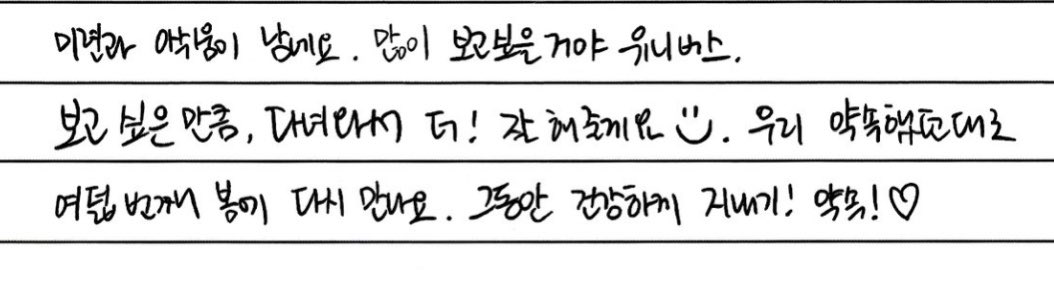 미련과 아쉬움이 남네요. 많이 보고싶을거야 유니버스.
보고 싶은 만큼, 다녀와서 더! 잘 해줄게요 :). 우리 약속했던대로
여덟 번째 봄에 다시 만나요. 그동안 건강하게 지내기! 약속!♡